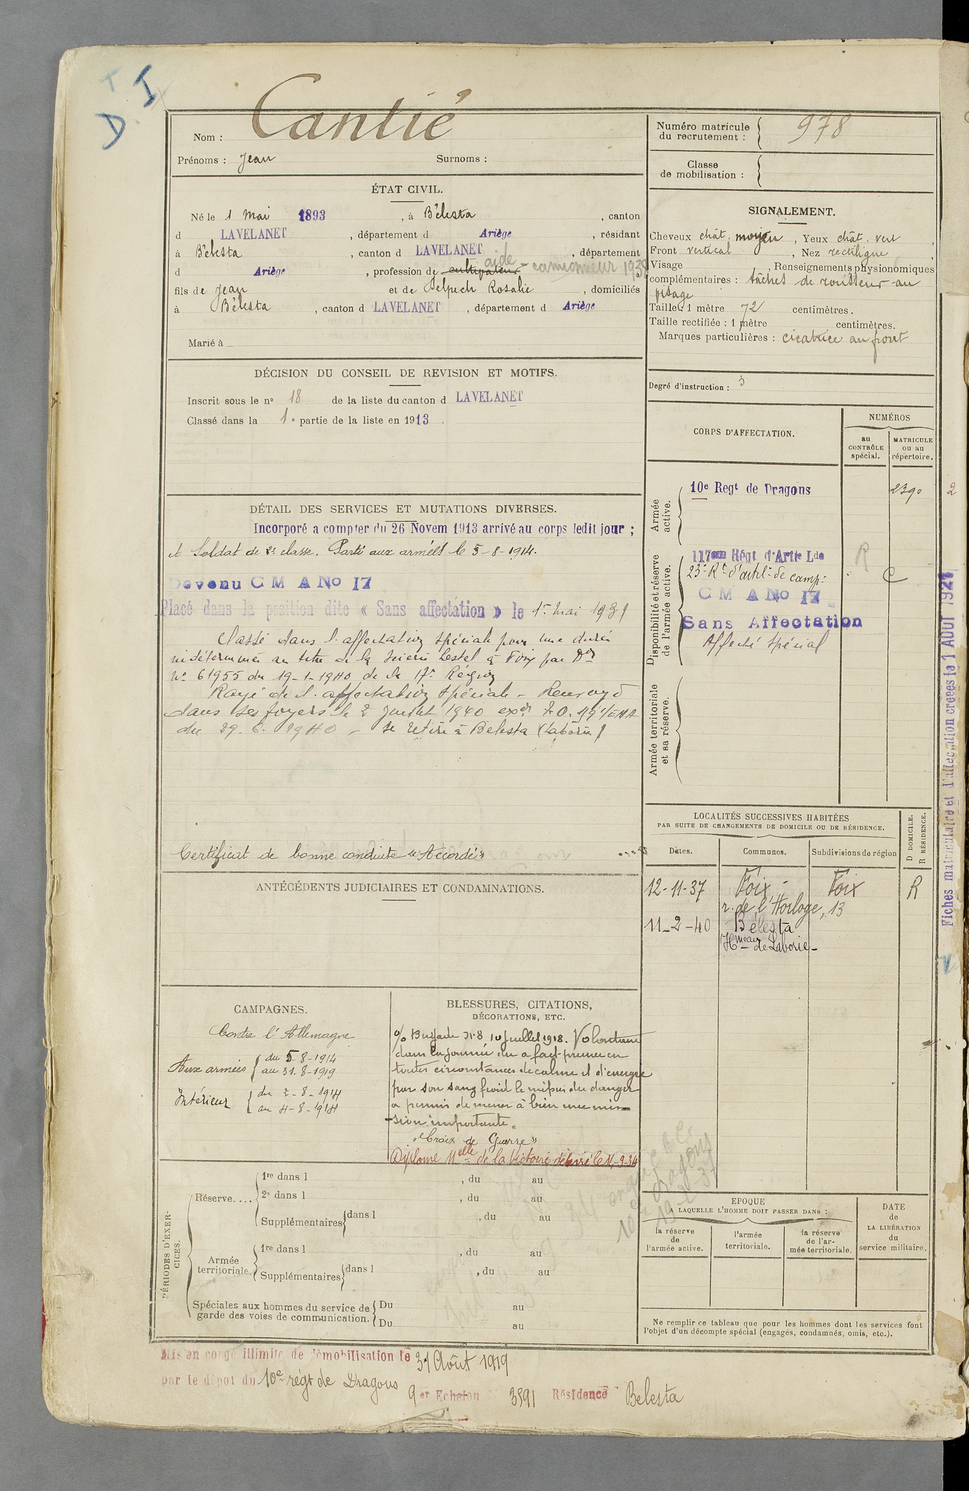 I
D
Nom : Cantié
Prénoms : Jean Surnoms :
ÉTAT CIVIL.
Né le 1 Mai 1893, à Bélesta, canton
d LAVELANET, département d Ariège, résidant
à Bélesta, canton d LAVELANET, département
d Ariège, profession de cultivateur aide-camionneur
fils de Jean et de Delpech Rosalie, domiciliés
à Bélesta, canton d LAVELANET, département d Ariège
Marié à
DÉCISION DU CONSEIL DE REVISION ET MOTIFS.
Inscrit sous le no 18 de la liste du canton d LAVELANET
Classé dans la 1e partie de la liste en 1913.
DÉTAIL DES SERVICES ET MUTATIONS DIVERSES.
Incorporé a compter du 26 Novem 1913 arrivé au corps ledit jour ;
et Soldat de 2e classe. Parti aux armées le 5-8-1914.
Devenu C M A No 17
Placé dans la position dite « Sans affectation » le 1er mai 1931
Classé dans l'affectation spéciale pour une durée
indéterminée au titre de la Scierie Lestel à Foix par
No 61955 du 19-1-1940 de la 17e Région
Rayé de l'affectation spéciale - Renvoyé
dans ses foyers le 2 Juillet 1940
du 29. 6. 1940 - Se retire à Bélesta (Laborie)
Certificat de bonne conduite « Accordé »
ANTÉCÉDENTS JUDICIAIRES ET CONDAMNATIONS.
CAMPAGNES.
Contre l'Allemagne
Aux armées du 5-8-1914
au 31-8-1919
Intérieur du 2-8-1914
au 4-8-1914
BLESSURES, CITATIONS,
DÉCORATIONS, ETC.
o/ Brigade No 8, 10 Juillet 1918. Volontaire
dans la journée du a fait preuve en
toutes circonstances de calme et d'énergie
par son sang froid le mépris du danger
a permis de mener à bien une mis-
sion importante.
« Croix de Guerre »
Diplôme Melle de la Victoire délivré le
PÉRIODES D'EXERCICES.
Réserve.... 1re dans l , du au
2e dans l , du au
Supplémentaires dans l , du au
Armée territoriale. 1re dans l , du au
Supplémentaires dans l , du au
Spéciales aux hommes du service de garde des voies de communication. Du au
Du au
Mis en congé illimité de démobilisation le 31 Août 1919
par le dépot du 10e régt de Dragons
9er Echelon 3591 Résidence Bélesta
Numéro matricule
du recrutement : 978
Classe
de mobilisation :
SIGNALEMENT.
Cheveux chât. moyen, Yeux chât. vert
Front vertical, Nez rectiligne
Visage , Renseignements physionomiques
complémentaires : tâches de rousseur au
visage
Taille : 1 mètre 72 centimètres.
Taille rectifiée : 1 mètre centimètres.
Marques particulières : cicatrice au front
Degré d'instruction : 3
CORPS D'AFFECTATION.
NUMÉROS
au CONTRÔLE spécial.
MATRICULE ou au répertoire.
Armée active.
10e Regt de Dragons 2390
Disponibilité et réserve de l'armée active.
117eme Régt d'Artie Lde R
23e Rt d'artil. de camp. C
C M A No 17
Sans Affectation
Affecté spécial
Armée territoriale et sa réserve.
LOCALITÉS SUCCESSIVES HABITÉES
PAR SUITE DE CHANGEMENTS DE DOMICILE OU DE RÉSIDENCE.
Dates. Communes. Subdivisions de région
D DOMICILE. R RÉSIDENCE.
12-11-37 Foix - Foix R
r. de l'Horloge, 13
11-2-40 Bélesta
Hmeau de Laborie
EPOQUE
A LAQUELLE L'HOMME DOIT PASSER DANS :
la réserve de l'armée active.
l'armée territoriale.
la réserve de l'armée territoriale.
DATE
de
LA LIBÉRATION
du
service militaire.
Ne remplir ce tableau que pour les hommes dont les services font
l'objet d'un décompte spécial (engagés, condamnés, omis, etc.).
Fiches matriculaire et d'affectation créées le 1 AOUT 1927